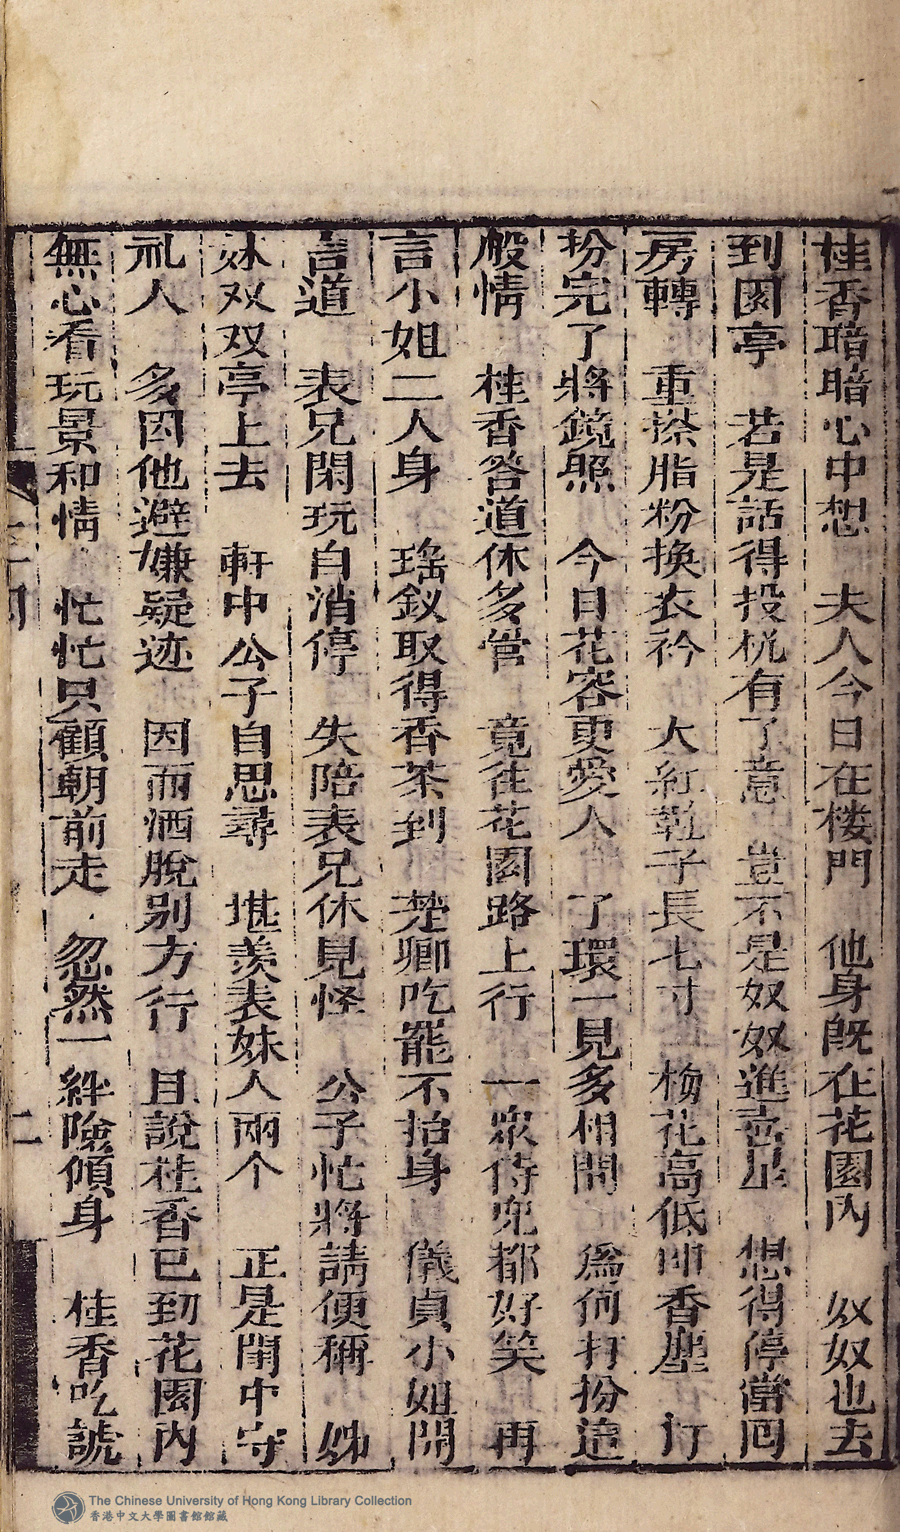 桂香暗暗心中想　夫人今日在楼門　他身既在花園內　奴奴也去
到园亭　若是話得投机有了意　豈不是奴奴進喜星　想得停當囘
房轉　重搽脂粉換衣衿　大紅鞋子長七寸　梅花高低印香塵　打
扮完了將鏡照　今日花容更愛人　了環一見多相問　爲何打扮這
般情　桂香答道休多管　竟往花园路上行　一衆侍兒都好笑　再
言小姐二人身　瑤釵取得香茶到　楚卿吃罷不抬身　儀貞小姐開
言道　表兄閑玩自消停　失陪表兄休見怪　公子忙將請便稱　姊
妹双双亭上去　軒中公子自思尋　堪羨表妹人兩个　正是閨中守
礼人　多因他避嫌疑迹　因而洒脫别方行　且說桂香已到花园內
無心看玩景和情　忙忙只顧朝前走　忽然一絆險傾身　桂香吃諕
二
The Chinese University of Hong Kong Library Collection
香港中文大學圖書館館藏